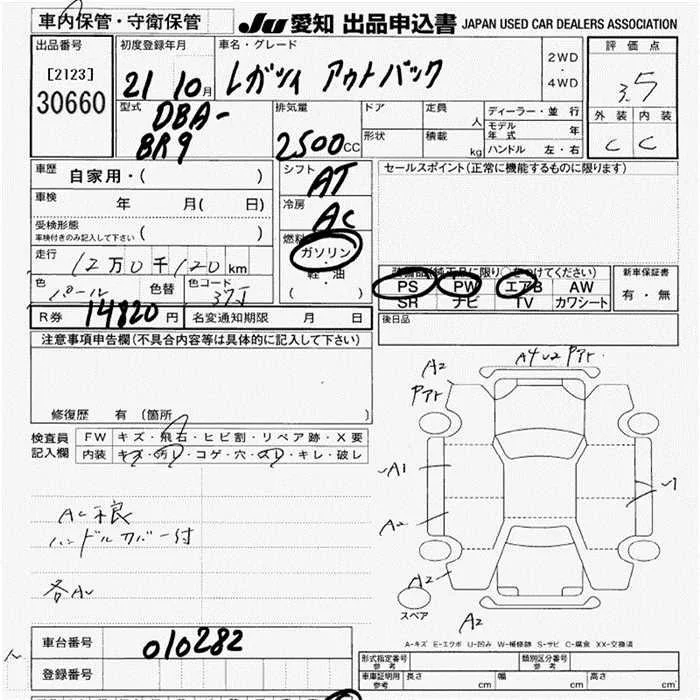 車内保管・守衛保管
JU 愛知 出品申込書 JAPAN USED CAR DEALERS ASSOCIATION
出品番号
[2123]
30660
初度登録年月
21 10月
車名・グレード
レガシィ アウトバック
2WD
・
4WD
評価点
3.5
外装 内装
C C
型式
DBA-
BR9
排気量
2500CC
ドア
定員 人
形状
積載 kg
ディーラー・並行
モデル年式 年
ハンドル 左・右
車歴 自家用・( )
車検 年 月( 日)
受検形態
車検付きのみ記入して下さい ( )
走行 12万0千120km
色 パール 色替 色コード 37J
シフト AT
冷房 AC
燃料
ガソリン
・
軽・油
( )
セールスポイント(正常に機能するものに限ります)
PS PW エアB AW
SR ナビ TV カワシート
新車保証書
有・無
R券 14820円 名変通知期限 月 日
後日品
注意事項申告欄(不具合内容等は具体的に記入して下さい)
修復歴 有 (箇所 )
検査員記入欄
FW キズ・飛石・ヒビ割・リペア跡・X要
内装 キズ・汚レ・コゲ・穴・スレ・キレ・破レ
AC不良
ハンドルカバー付
各AU
A2
アト
A4U2 アト
A1
A2
A2
A2
スペア
A-キズ E-エクボ U-凹み W-補修跡 S-サビ C-腐食 XX-交換済
車台番号 010282
登録番号
形式指定番号 参考
類別区分番号 参考
車庫証明用参考 長さ cm 幅 cm 高さ cm